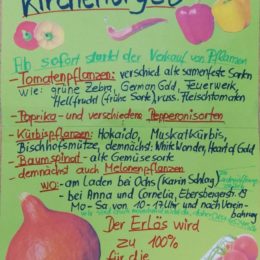 Ab sofort startet der Verkauf von Pflanzen
- Tomatenpflanzen: verschied. alte samenfeste Sorten
wie: grüne Zebra, German Gold, Feuerwerk,
Hellfrucht (frühe Sorte), russ. Fleischtomaten
- Paprika- und verschiedene Pepperonisorten
- Kürbispflanzen: Hokaido, Muskatkürbis,
Bischofsmütze, demnächst: White Wonder, Heart of Gold
- Baumspinat - alte Gemüsesorte
- demnächst auch Melonenpflanzen
wo: - am Laden bei Ochs (Karin Schlag)
- bei Anna und Cornelia, Ebersbergerstr. 8
Mo - Sa von 10 - 17 Uhr und nach Verein-
barung
Der Erlös wird
zu 100%
für die